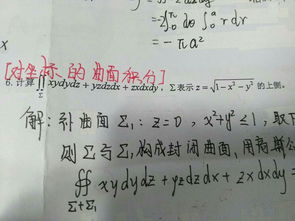 =-∫₀^π dθ ∫₀^a r dr
= -πa²
x
[对坐标的曲面积分]
6. 计算∬_Σ xydydz + yzdzdx + zxdxdy, Σ表示 z = √(1-x²-y²) 的上侧.
解: 补曲面 Σ₁: z=0, x²+y²≤1, 取下
则 Σ与Σ₁构成封闭曲面, 用高斯公
∯_{Σ+Σ₁} xydydz + yzdzdx + zxdxdy =